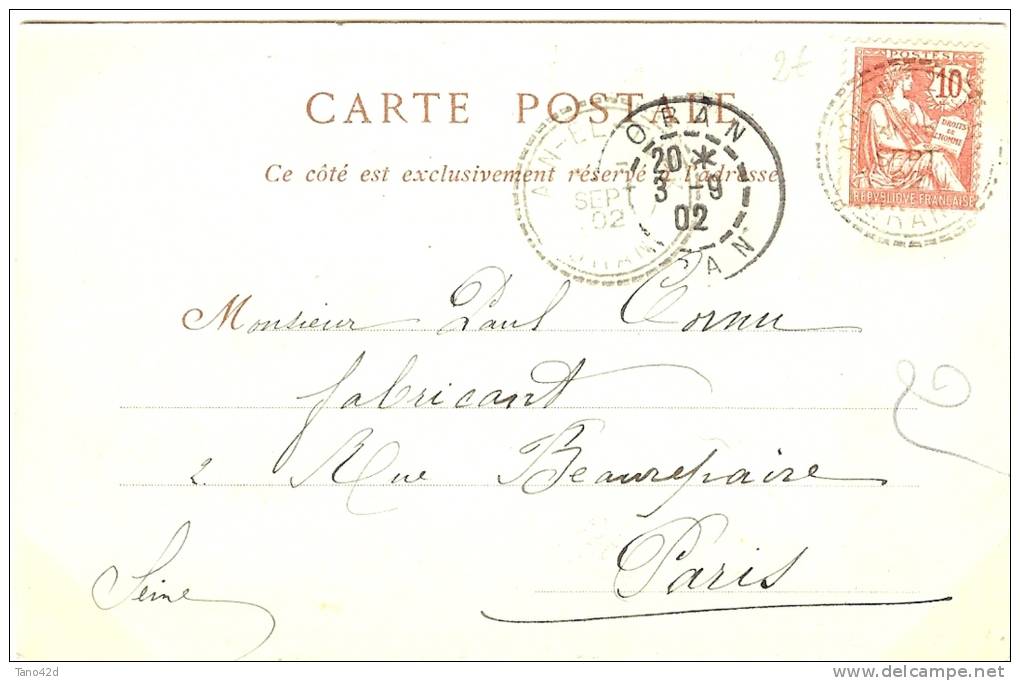 2t
POSTES
10
DROITS
DE
L'HOMME
REPVBLIQVE FRANÇAISE
CARTE POSTALE
Ce côté est exclusivement réservé à l'adresse
ORAN
20 *
3 -9
02
ORAN
SEPT
02
ORAN
SEPT
ORAN
Monsieur Paul Cornu
fabricant
2 Rue Beaurepaire
Paris
Seine
20
Tano42d
www.delcampe.net